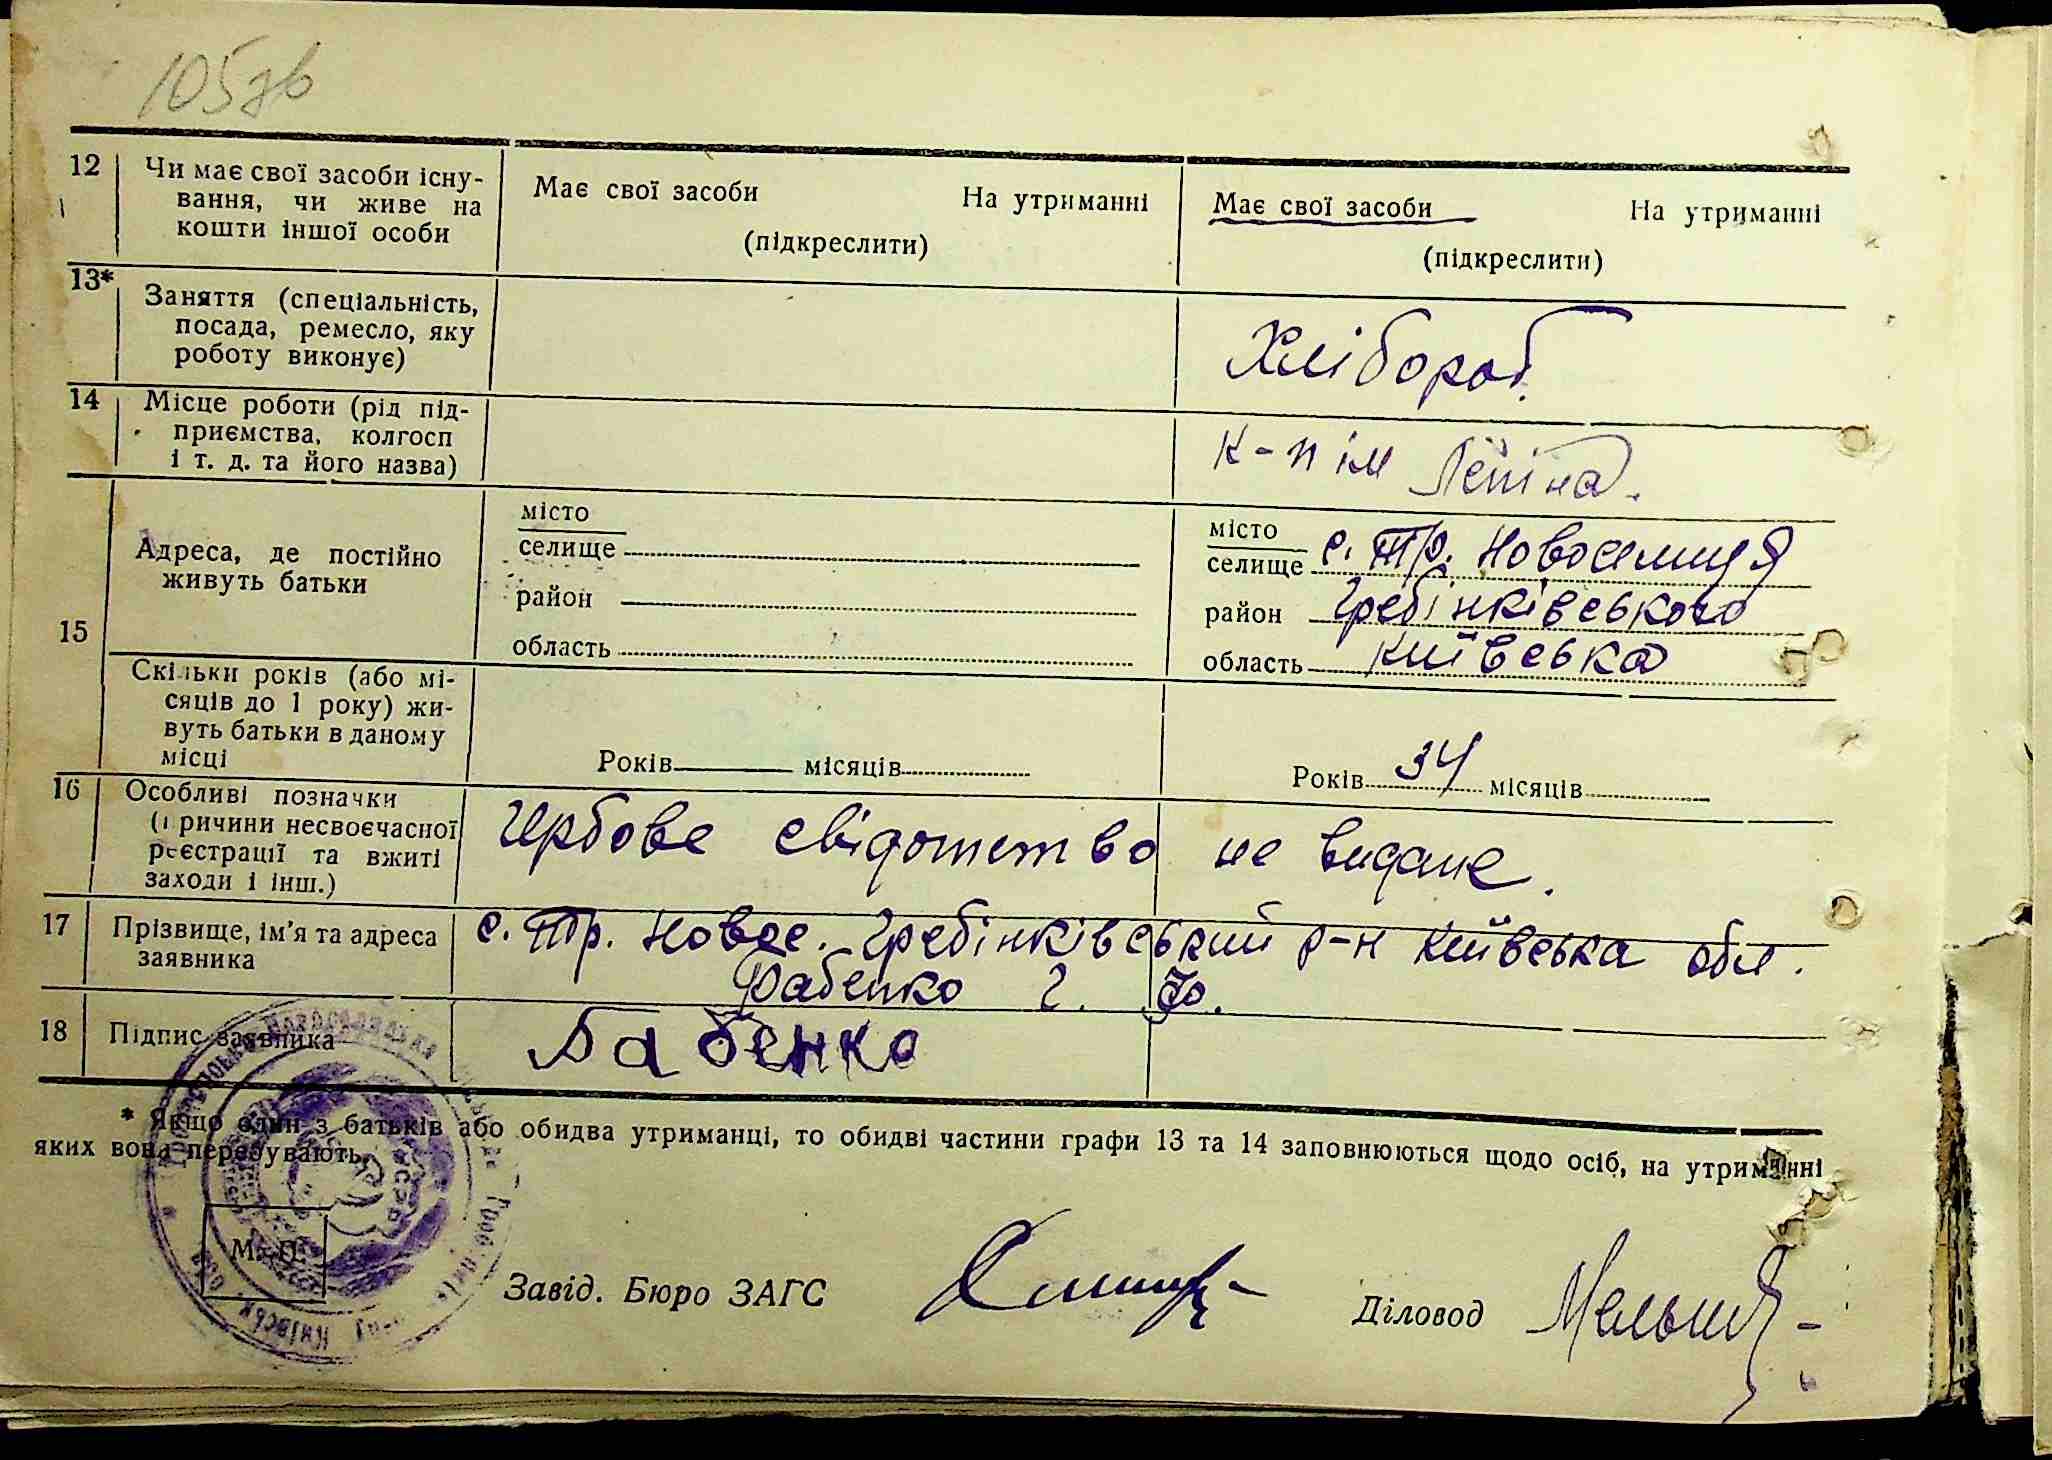 105зв
12 Чи має свої засоби існу-
вання, чи живе на
кошти іншої особи
Має свої засоби На утриманні
(підкреслити)
Має свої засоби На утриманні
(підкреслити)
13* Заняття (спеціальність,
посада, ремесло, яку
роботу виконує)
Хлібороб.
14 Місце роботи (рід під-
приємства, колгосп
і т. д. та його назва)
к-п ім Леніна.
15
Адреса, де постійно
живуть батьки
місто
селище
район
область
місто
селище с. Тр. Новоселиця
район Гребінківського
область київська
Скільки років (або мі-
сяців до 1 року) жи-
вуть батьки в даному
місці
Років місяців
Років 34 місяців
16 Особливі позначки
(причини несвоєчасної
реєстрації та вжиті
заходи і інш.)
Гербове свідотство не видане.
17 Прізвище, ім'я та адреса
заявника
с. Тр. Новос. Гребінківський р-н київська обл.
Бабенко Г.
18 Підпис заявника
Бабенко
* Якщо один з батьків або обидва утриманці, то обидві частини графи 13 та 14 заповнюються щодо осіб, на утриманні
яких вона перебувають.
М. П.
Завід. Бюро ЗАГС
Діловод